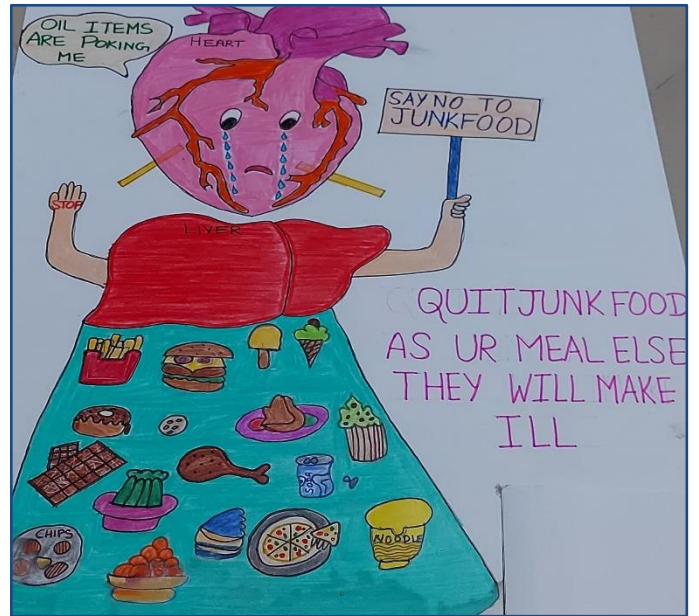 OIL ITEMS
ARE POKING
ME
HEART
SAY NO TO
JUNKFOOD
STOP
LIVER
QUIT JUNK FOOD
AS UR MEAL ELSE
THEY WILL MAKE
ILL
SODA
CHIPS
NOODLE